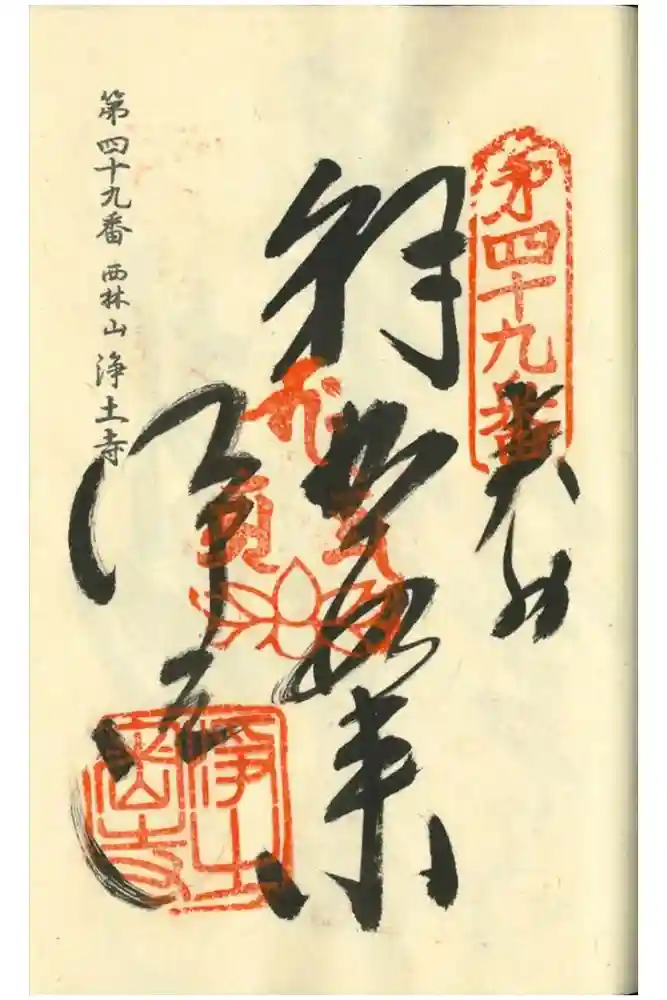 第四十九番
奉納
釈迦如来
浄土寺
第四十九番 西林山 浄土寺